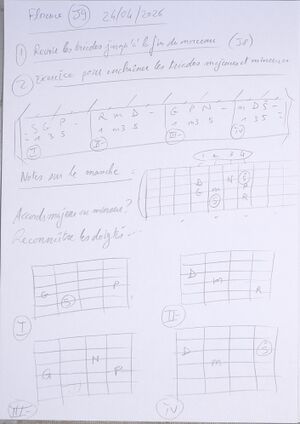 Florence (J9) 24/04/2026
① Revoir les triades jusqu'à la fin du morceau (J8)
② Exercice pour enchaîner les triades majeures et mineures
S G P - / R m D - / G P N - / m D S -
= 1 3 5 / 1 m3 5 / 1 m3 5 / 1 m3 5
I II- III- IV
Notes sur le manche =
1 2 3 4
D N S
G m P
S R
Accords majeur ou mineur ?
Reconnaître les doigtés...
G S P
I
D m R
II-
G N P
III-
D m S
IV